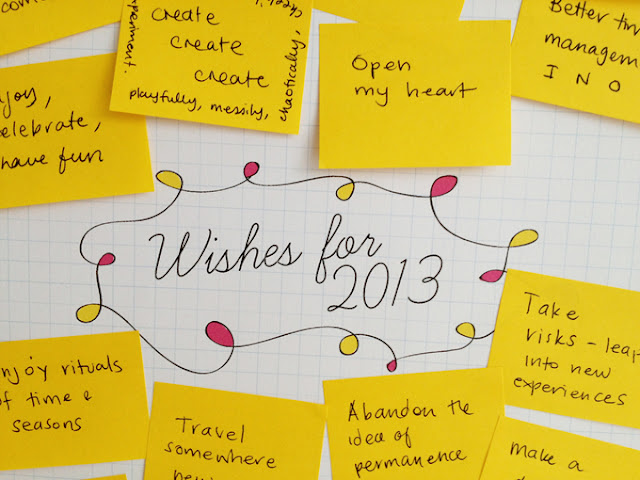 create
create
create
playfully, messily,
chaotically,
Open
my heart
Better
management
I N O
celebrate,
have fun
Wishes for
2013
Take
risks – leap
into new
experiences
enjoy rituals
of time &
seasons
Travel
somewhere
Abandon the
idea of
permanence
make a